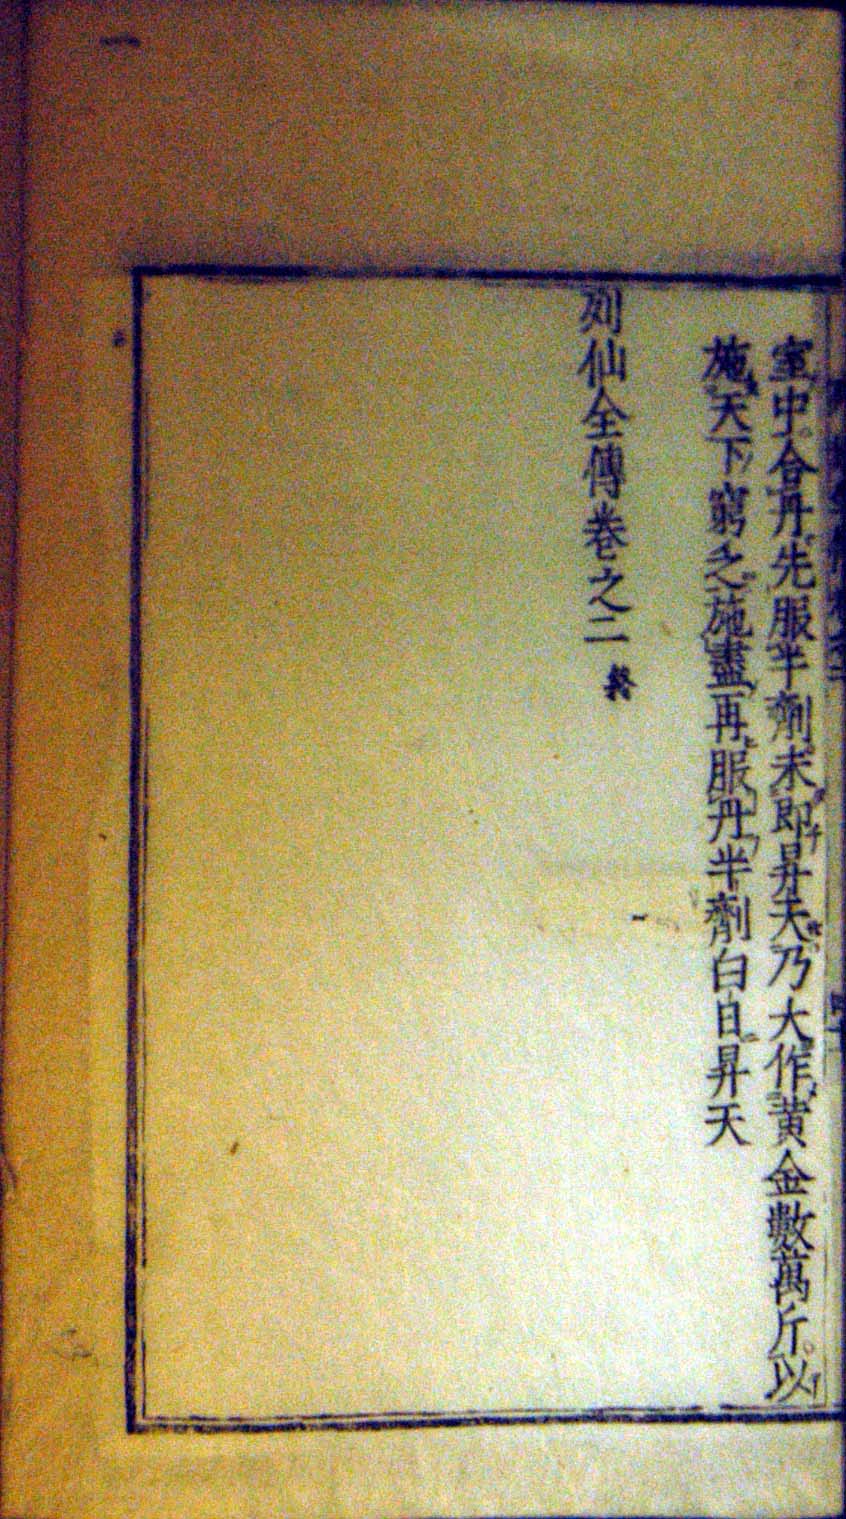 室中合丹先服半劑未即昇天乃大作黄金數萬斤以
施天下窮乏施盡再服丹半劑白日昇天
列仙全傳卷之二 終